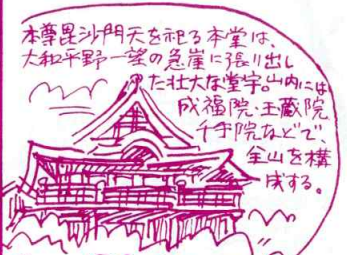 本尊毘沙門天を祀る本堂は、
大和平野一望の急崖に張り出し
た壮大な堂宇。山内には
成福院・玉蔵院
千手院などで、
全山を構
成する。